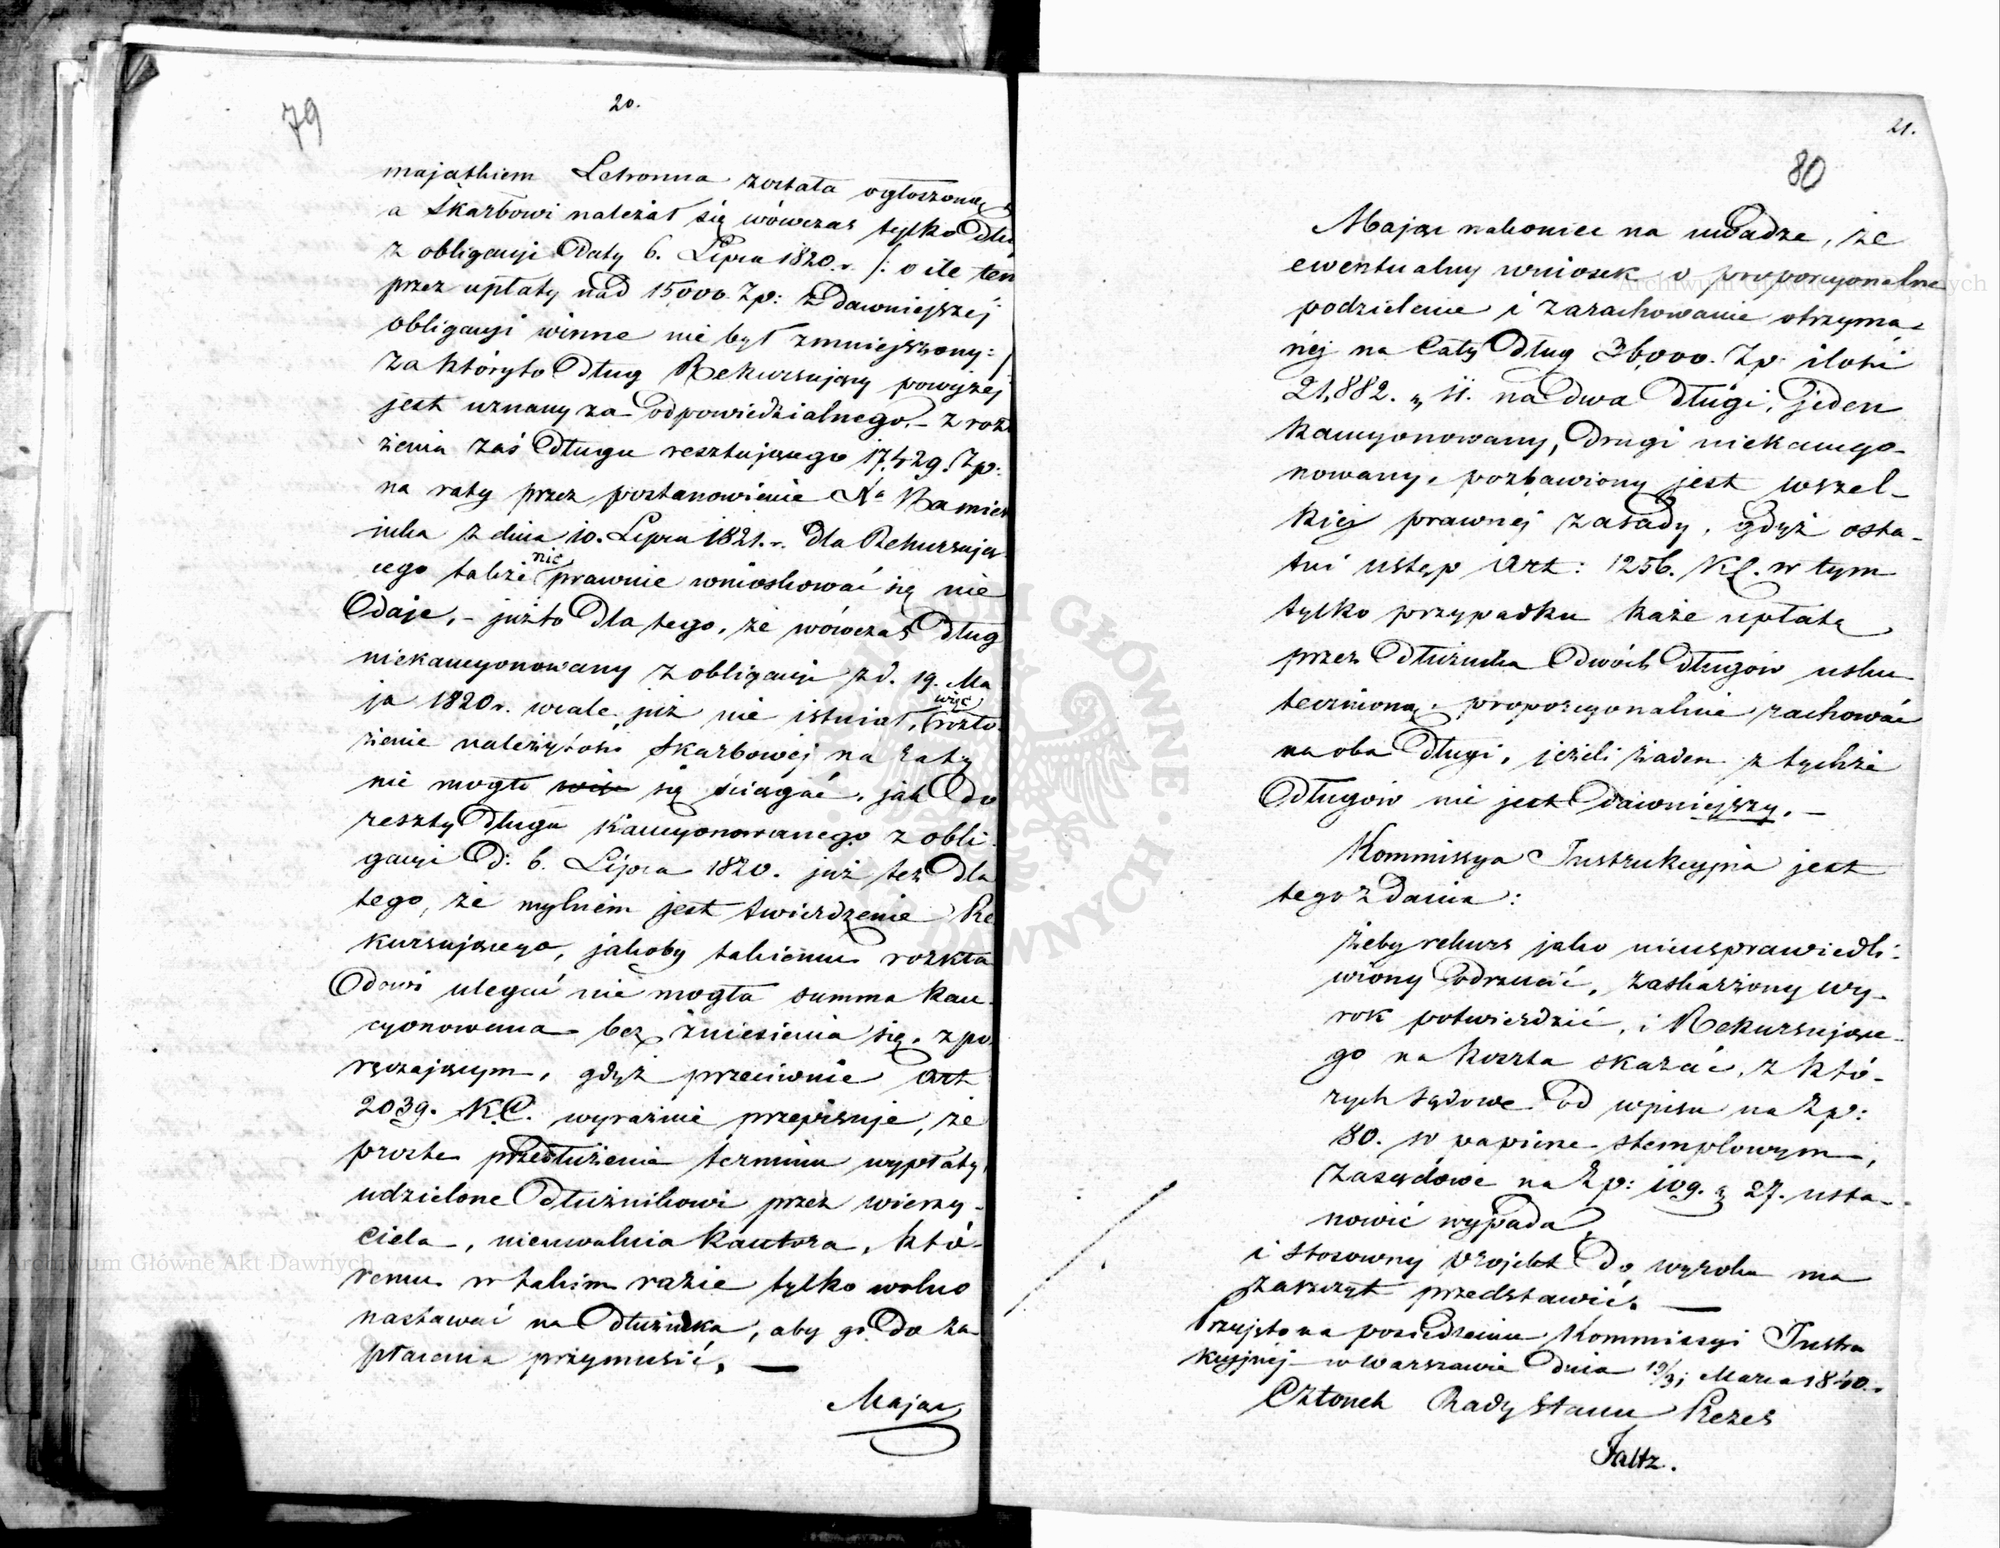 79
20.
majątkiem Letronna została ogłoszoną,
a Skarbowi należał się wówczas tylko dłu
z obligacyi daty 6. Lipca 1820. r. /: o ile ten
przez upłaty nad 15000. Zp: z dawniejszej
obligacyi winne nie był zmniejszony: /
za któryto dług Rekursujący powyżej
jest uznany za odpowiedzialnego. – z rozło
żenia zaś długu resztującego 17,429. Zp:
na raty przez postanowienie Xa Namiest
nika z dnia 10. Lipca 1821. r. dla Rekursują
cego także nic prawnie wnioskować się nie
daje, – już to dla tego, że wówczas dług
niekaucyonowany z obligacyi z d. 19. Ma
ja 1820 r. wcale już nie istniał, więc rozło
żenie należytości Skarbowej na raty
nie mogło więc się ściągać, jak do
reszty długu kaucyonowanego z obli
gacyi d: 6. Lipca 1820. już też dla
tego, że mylnem jest twierdzenie Re
kursującego, jakoby takiemu rozkła
dowi ulegać nie mogła summa kau
cyonowana bez zniesienia się z po
ręczającym, gdyż przeciwnie Art
2039. K.C. wyraźnie przepisuje, że
proste przedłużenie terminu wypłaty,
udzielone dłużnikowi przez wierzy-
ciela, nieuwalnia kautora, któ-
remu w takim razie tylko wolno
nastawać na dłużnika, aby go do za
płacenia przymusić. —
Mając
21.
80
Mając nakoniec na uwadze, że
ewentualny wniosek o proporcyonalne
podzielenie i zarachowanie otrzyma-
nej na cały dług 36,000. Zp. ilości
21,882. „ 11. na dwa długi, jeden
kaucyonowany, drugi niekaucyo-
nowany, pozbawiony jest wszel-
kiej prawnej zasady, gdyż osta-
tni ustęp Art: 1256. K.C. w tym
tylko przypadku każe upłatę
przez dłużnika dwóch długów usku
tecznioną, proporcyonalnie rachować
na oba długi, jeżeli żaden z tychże
długów nie jest dawniejszy. —
Kommissya Instrukcyjna jest
tego zdania:
żeby rekurs jako nieusprawiedli-
wiony odrzucić, zaskarżony wy-
rok potwierdzić, i Rekursujące-
go na koszta skazać, z któ-
rych sądowe od wpisu na Zp:
80. w papierze stemplowym,
zasądowe na Zp: 109. g 27. usta-
nowić wypada,
i stosowny projekt do wyroku ma
zaszczyt przedstawić. —
Przyjęto na posiedzeniu Kommissyi Instru
kcyjnej w Warszawie dnia 19/31 Marca 1840. r.
Członek Rady Stanu Prezes
Faltz.
Archiwum Główne Akt Dawnych
Archiwum Główne Akt Dawnych